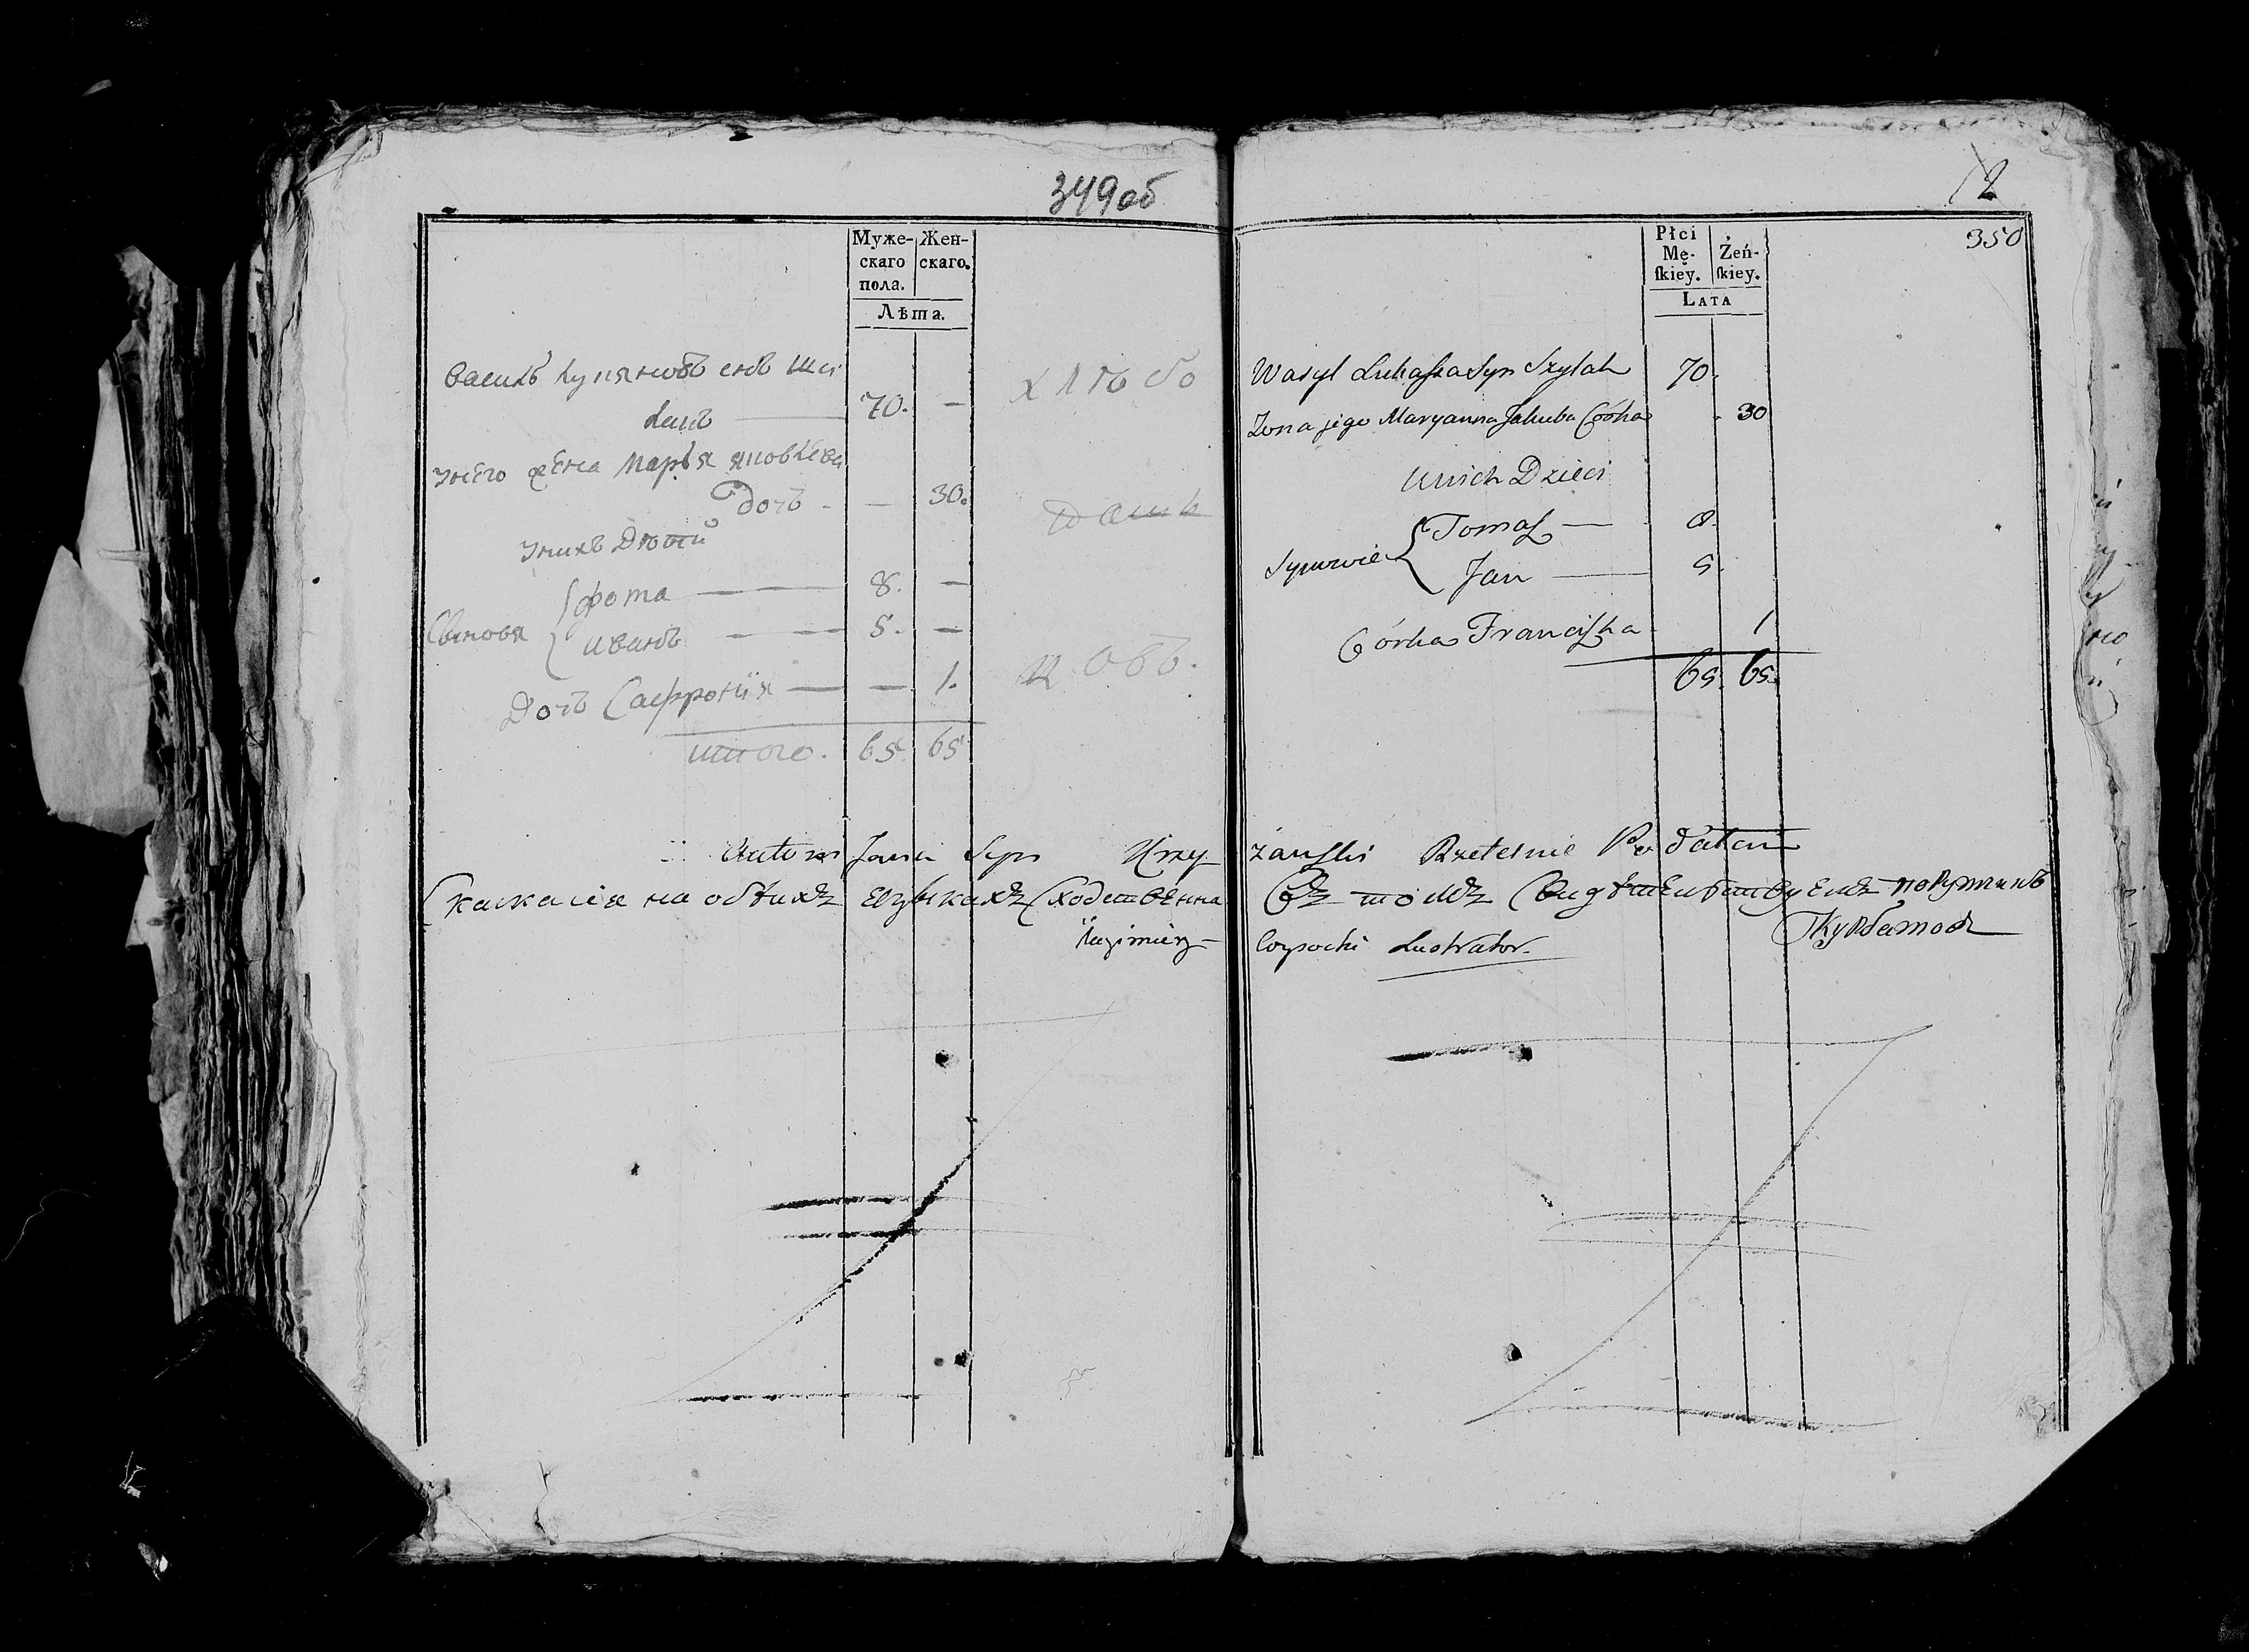 349об
Муже-
скаго
пола.
Жен-
скаго.
Лѣта.
Василь снъ Ши
лакъ 70. —
унего жена Марья яковлева
дочь - — 30.
унихъ Дѣтей
Сыновя { фома — 8. —
иванъ — — 5. —
Дочь Сафронія — — 1.
итого. 65 65
хлѣбо
паш
цовъ.
2
350
Płci
Mę-
ſkiey.
Żeń-
ſkiey.
Lata
Wasyl Łukaſza Syn Szylak 70.
Zona jego Maryanna Jakuba Córka 30
Unich Dzieci
Synowie { Tomaſz — 8.
Jan — 5.
Córka Franciſzka 1
65. 65.
Antoni Jana Syn Krzy żanſki Rzetelnie Podałem
Скаска сія на обѣихъ языкахъ сходственна Въ томъ Свидѣтельствуемъ порутчикъ
Kazimierz Wysocki Lustrator.